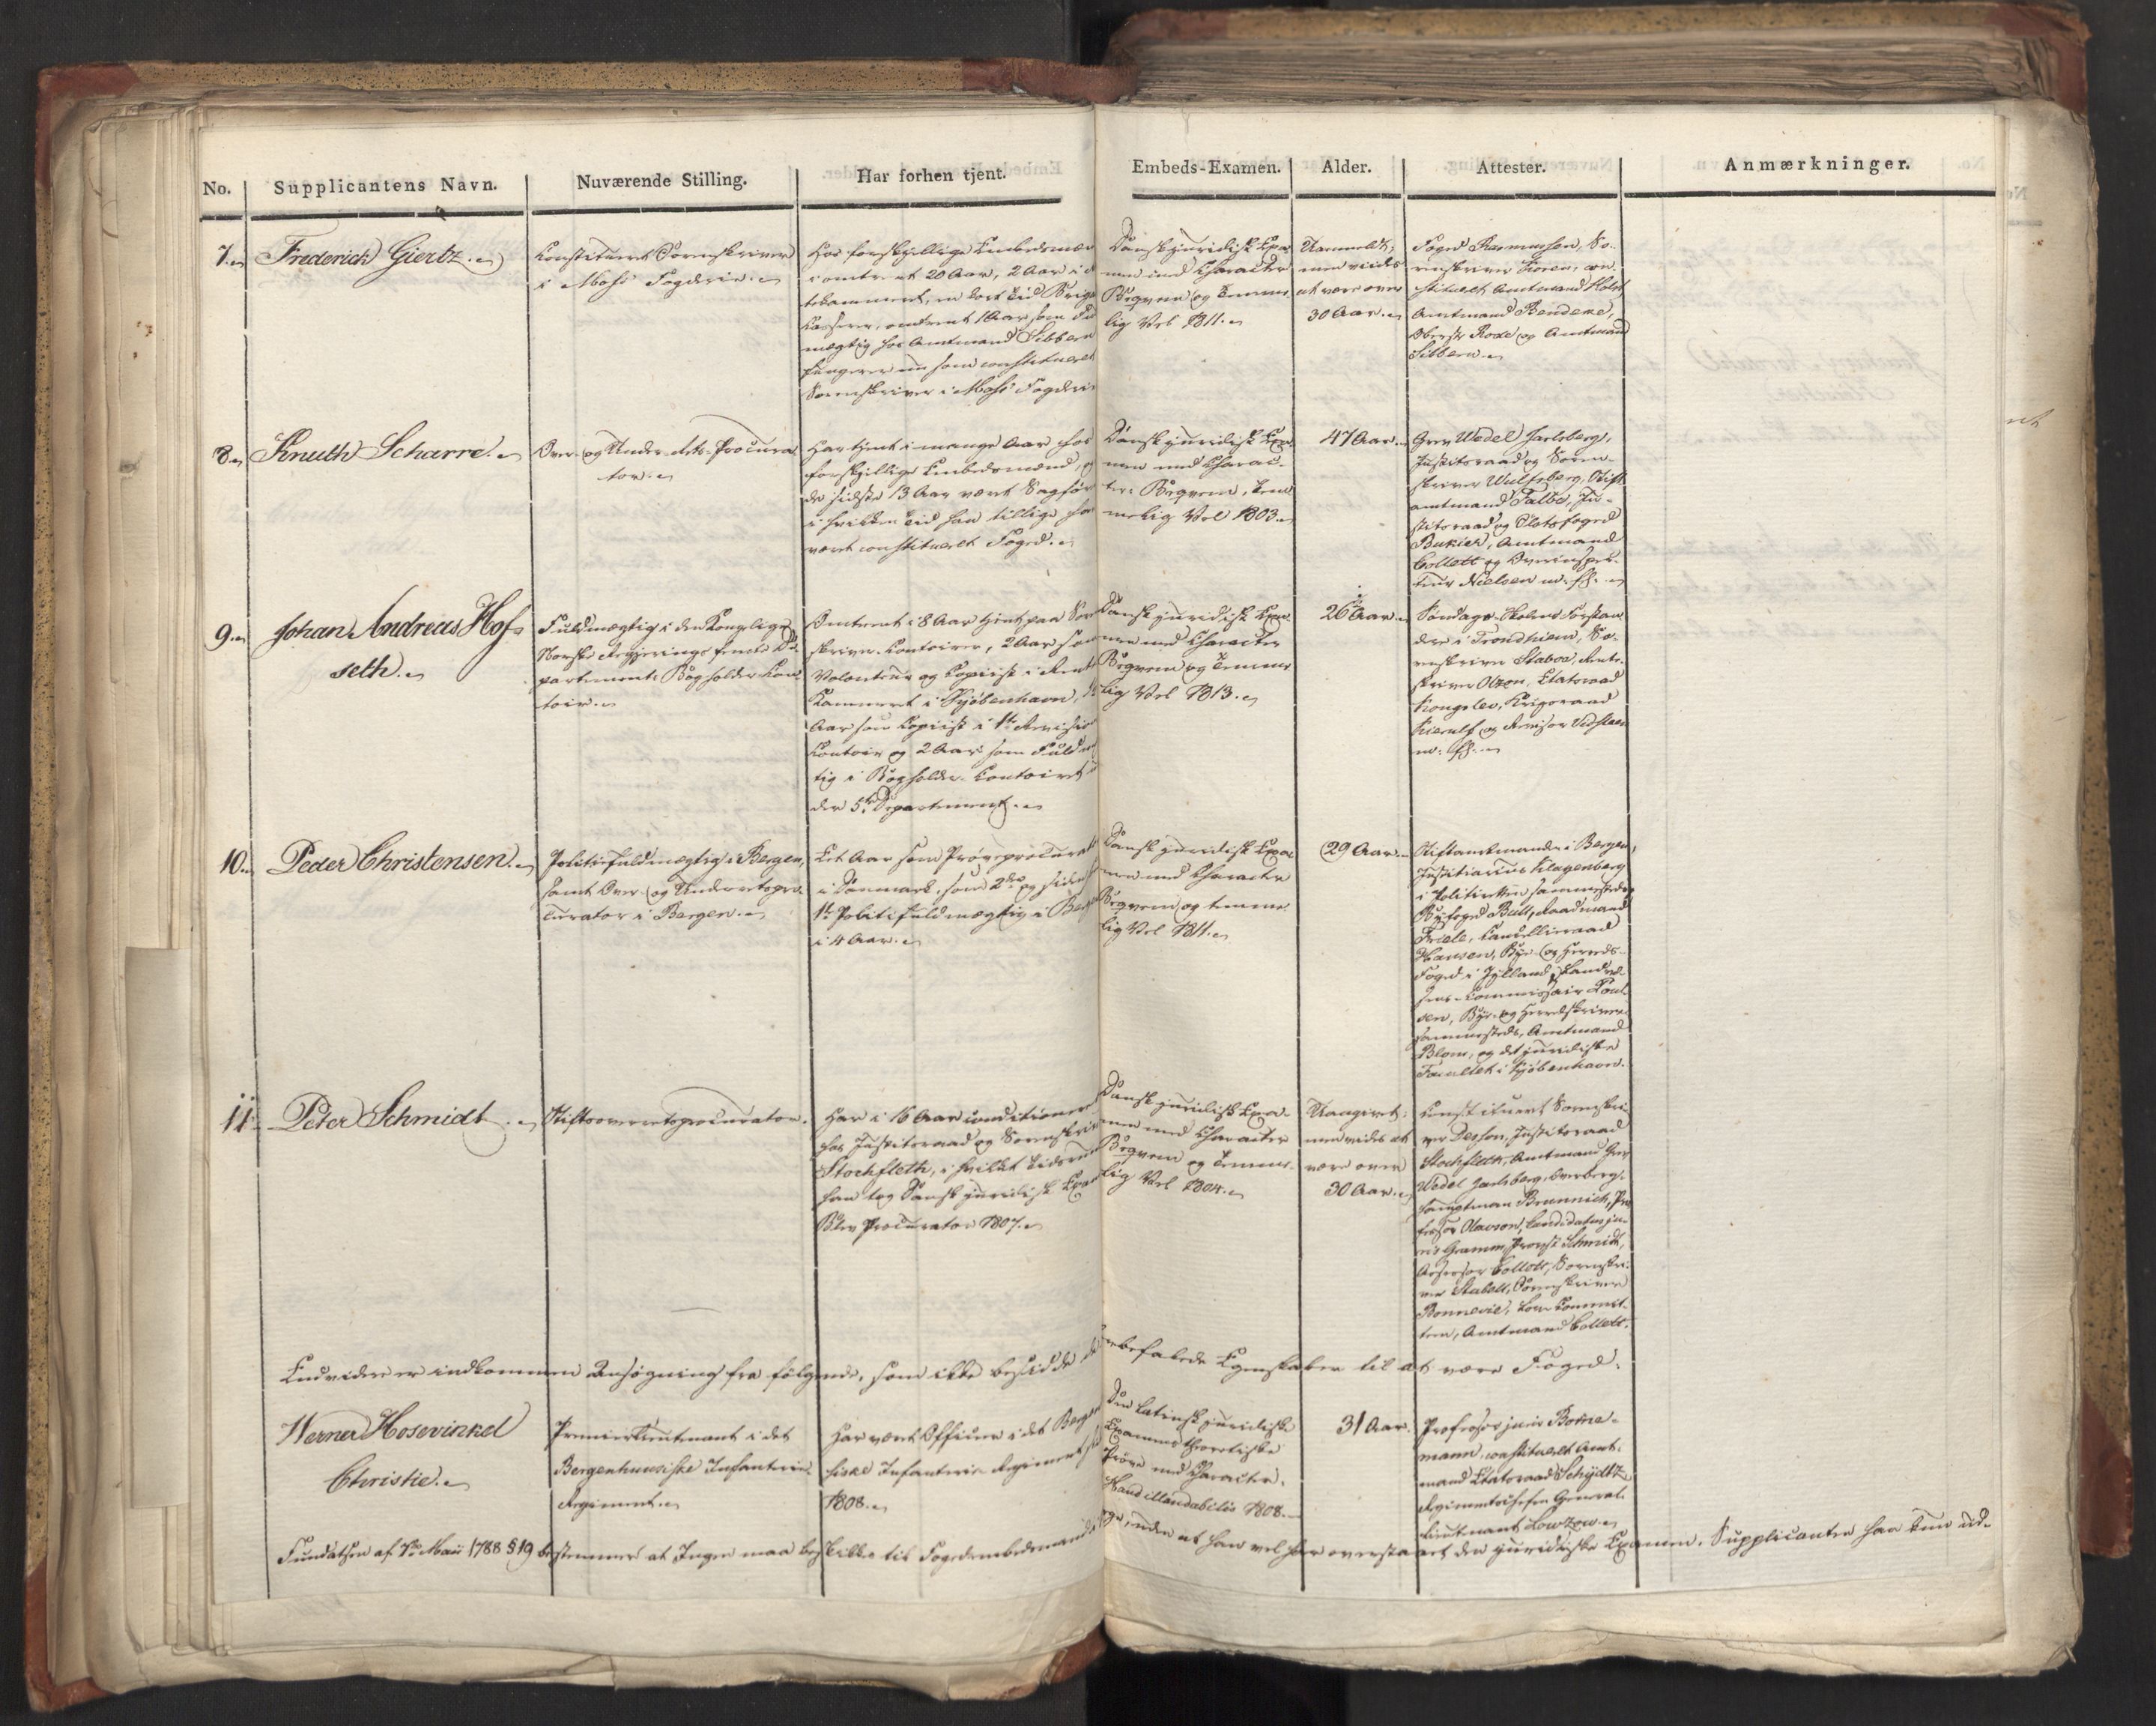 No.
Supplicantens Navn.
Nuværende Stilling.
Har forhen tjent.
Embeds-Examen.
Alder.
Attester.
Anmærkninger.
7.
Frederich Giertz.
Constitueret Sorenskriver
i Mosse Fogderie.
Hos forskjellige Embedsmæn
i omtrent 20 Aar, 2 Aar i
en kort Tid Brigade
Casserer, omtrent 1 Aar som Fuld
mægtig hos Amtmand Sibbern
fungerer nu som constitueret
Sorenskriver i Mosse Fogderie
Dansk juridisk Exa-
men med Character
Beqvem og Temme-
lig Vel 1811.
Uanmeldt,
men vides
at være over
30 Aar.
Foged Rasmussen, So-
renskriver Koren, con-
stitueret Amtmand Holst,
Amtmand Bendeke,
Oberst Rode og Amtmand
Sibbern.
8.
Knuth Scharre.
Over- og Under-Rets-Procura-
tor.
Har tjent i mange Aar hos
forskjellige Embedsmænd, og
de sidste 13 Aar været Sagfører
i hvilken Tid han tillige har
været constitueret Foged.
Dansk juridisk Exa-
men med Charac-
ter: Beqvem, Tem-
melig Vel 1803.
47 Aar.
Grev Wedel Jarlsberg,
Justitsraad og Soren-
skriver Wulfsberg, Stift-
amtmand Falbe, Ju-
stitsraad og Slotsfoged
Bukier, Amtmand
Collett og Overinspec-
teur Nielsen m: fl:
9.
Johan Andreas Hof-
seth.
Fuldmægtig i den Kongelige
Norske Regjerings femte De-
partements Bogholder-Con-
toir.
Omtrent i 8 Aar tjent paa Soren
skriver-Contoirer, 2 Aar som
Volonteur og Copiist i Rente
Kammeret i Kjøbenhavn,
Aar som Copiist i 1te Revisions
Contoir og 2 Aar som Fuldmæg
tig i Bogholder-Contoiret
der 5te Departement.
Dansk juridisk Exa-
men med Character
Beqvem og Temme-
lig Vel 1813.
26 Aar.
Søndags-Skolens Forstan-
dere i Trondhiem, So-
renskriver Staboe, Rente-
skriver Olzen, Etatsraad
Kongslev, Krigsraad
Kierulf og Revisor Vedsteen
m: fl:
10.
Peder Christensen.
Politiefuldmægtig i Bergen,
samt Over- og Underretspro-
curator i Bergen.
Eet Aar som Prøveprocurator
i Danmark, som 2den og siden
1te Politifuldmægtig i Bergen
i 4 Aar.
Dansk juridisk Exa-
men med Character
Beqvem og temme-
lig Vel 1811.
29 Aar.
Stiftamtmanden i Bergen,
Justitiarius Klagenberg
i Politieretten sammesteds,
Byfoged Bull, Raadmand
Friele, Cancellieraad
Hansen, Bye- og Herreds-
Foged i Jylland, Landvæ-
sens-Commissair Poul-
sen, Bye- og Herredsskriver
sammesteds, Amtmand
Blom, og det juridiske
Facultet i Kjøbenhavn.
11.
Peter Schmidt.
Stiftsoverretsprocurator.
Har i 16 Aar conditioneret
hos Justitsraad og Sorenskriver
Stochfleth, i hvilket Tidsrum
han tog Dansk juridisk Examen
Blev Procurator 1807.
Dansk juridisk Exa-
men med Character
Beqvem og Temme-
lig Vel 1804.
Uangivet;
men vides at
være over
30 Aar.
Constitueret Sorenskri-
ver Desson, Justitsraad
Stochfleth, Amtmand Grev
Wedel Jarlsberg, Overberg-
hauptman Brunnich, Pro-
fessor Olavson, Candidatus ju-
ris Gramm, Provst Schmidt,
Assessor Collett, Sorenskri-
ver Stabell, Sorenskriver
Bonnevie, Lov-Commit-
teen, Amtmand Collett.
Endvidere er indkommen Ansøgning fra følgende, som ikke besidde de anbefalede Egenskaber til at være Foged:
Werner Hosevinkel
Christie.
Premierlieutenant i det
Bergenhuusiske Infanterie
Regiment.
Har været Officeer i det Bergen
huusiske Infanterie Regiment siden
1808.
Den Latinsk juridiske
Examens theoretiske
Prøve med Character,
Haud illaudabilis 1808.
31 Aar.
Professor juris Borne-
mann, constitueret Amt-
mand Etatsraad Schydtz,
Regimentschefen General-
lieutenant Lowzow.
Fundatsen af 7de Maii 1788 §19 bestemmer at Ingen maa beskikkes til Fogedembedsmand i Norge, uden at han vel har overstaaet den juridiske Examen. Supplicanten har kun ud-